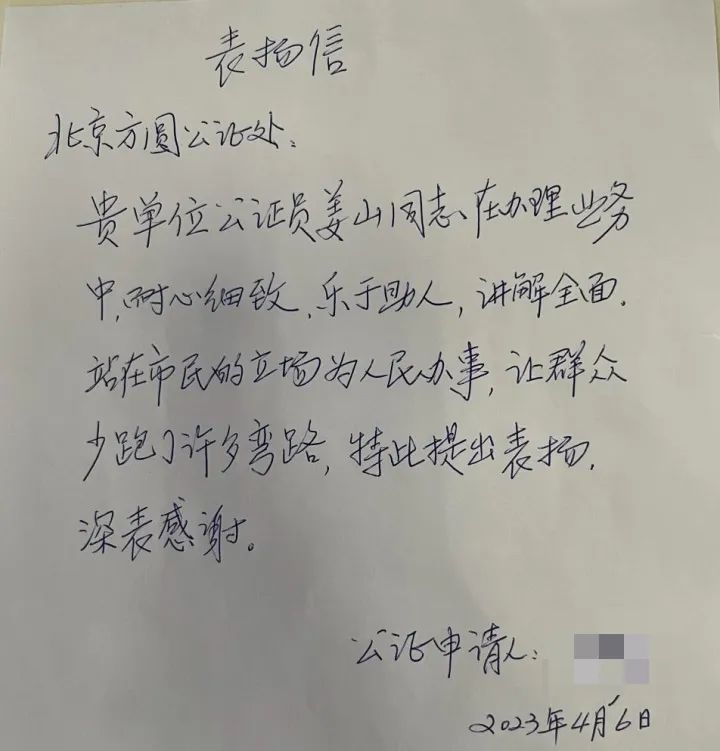 表扬信
北京方圆公证处:
贵单位公证员姜山同志、在办理业务
中,耐心细致、乐于助人,讲解全面.
站在市民的立场为人民办事,让群众
少跑了许多弯路,特此提出表扬.
深表感谢。
公证申请人:
2023年4月6日